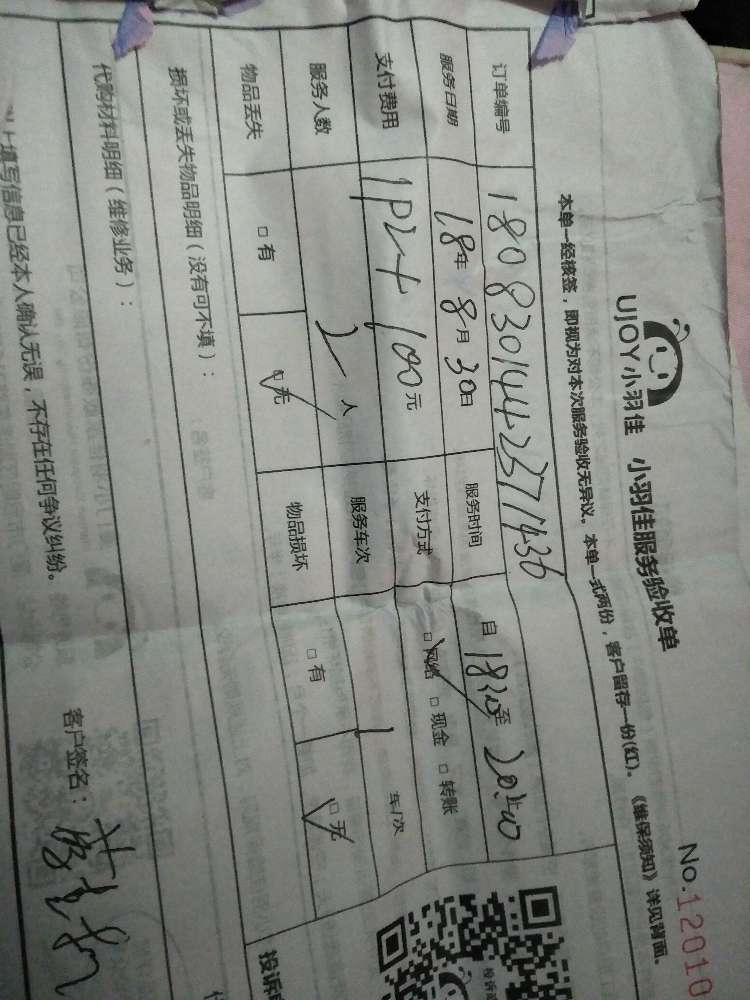 No.12010
UJOY小羽佳 小羽佳服务验收单
本单一经核签，即视为对本次服务验收无异议。本单一式两份，客户留存一份(红)。《维保须知》详见背面。
订单编号 1808301442371436
服务日期 18年 8月 30日 服务时间 自 至
支付费用 100元 支付方式 网络 现金 转账
服务人数 2人 服务车次 1 车/次
物品丢失 有 无 物品损坏 有 无
损坏或丢失物品明细（没有可不填）：
代购材料明细（维修业务）：
填写信息已经本人确认无误，不存在任何争议纠纷。
客户签名：
投诉